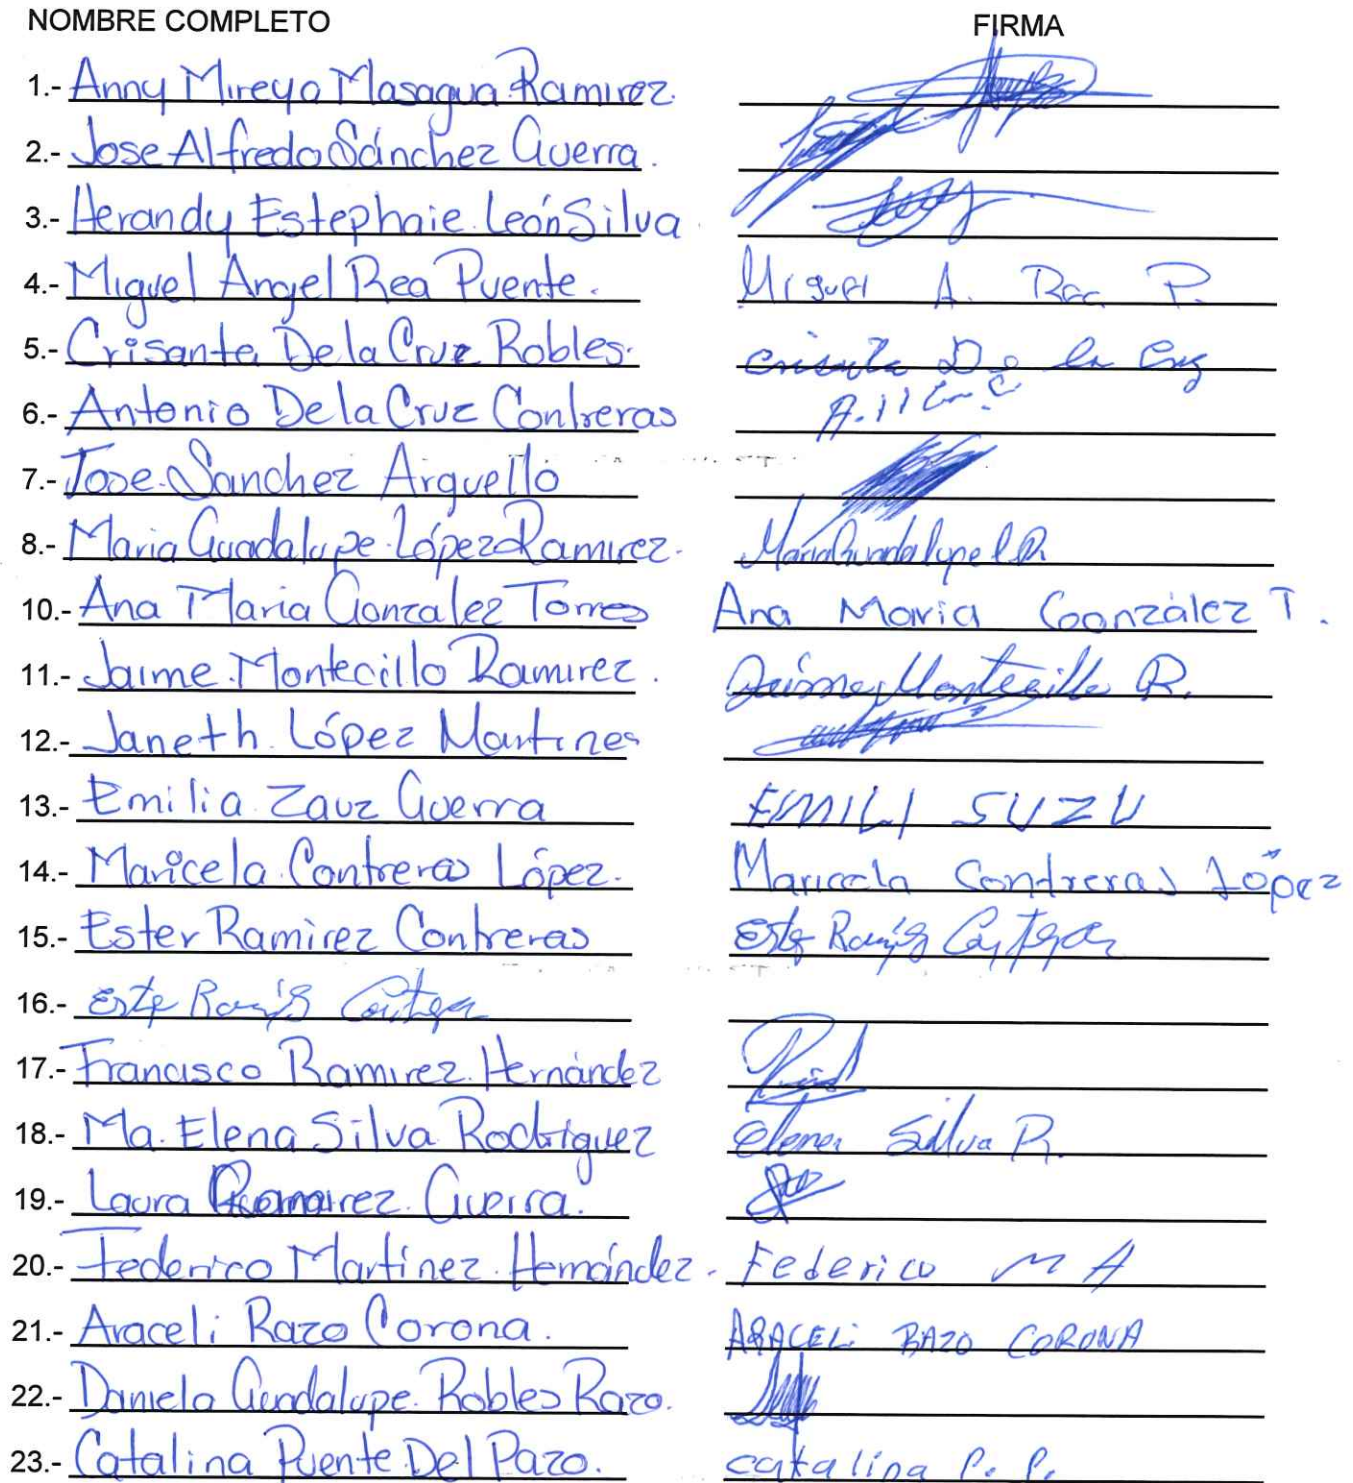 NOMBRE COMPLETO FIRMA
1.- Anny Mireya Masagua Ramirez.
2.- Jose Alfredo Sánchez Guerra.
3.- Herandy Estephaie León Silva.
4.- Miguel Angel Rea Puente. Miguel A. Rea P.
5.- Crisanta De la Cruz Robles. De la Cruz
6.- Antonio De la Cruz Contreras
7.- Jose Sanchez Arguello
8.- Maria Guadalupe López Ramirez. María Guadalupe L R.
10.- Ana Maria Gonzalez Torres Ana Maria González T.
11.- Jaime Montecillo Ramirez. Jaime Montecillo R.
12.- Janeth López Martines
13.- Emilia Zauz Guerra EMILI SUZU
14.- Maricela Contreras López. Maricela Contreras López
15.- Ester Ramirez Contreras
16.-
17.- Francisco Ramirez Hernández
18.- Ma. Elena Silva Rodriguez Elena Silva R.
19.- Laura Ramirez Guerra.
20.- Federico Martínez Hernández. Federico M A
21.- Araceli Razo Corona. ARACELi RAZO CORONA
22.- Daniela Guadalupe Robles Razo.
23.- Catalina Puente Del Pazo. catalina P. P.